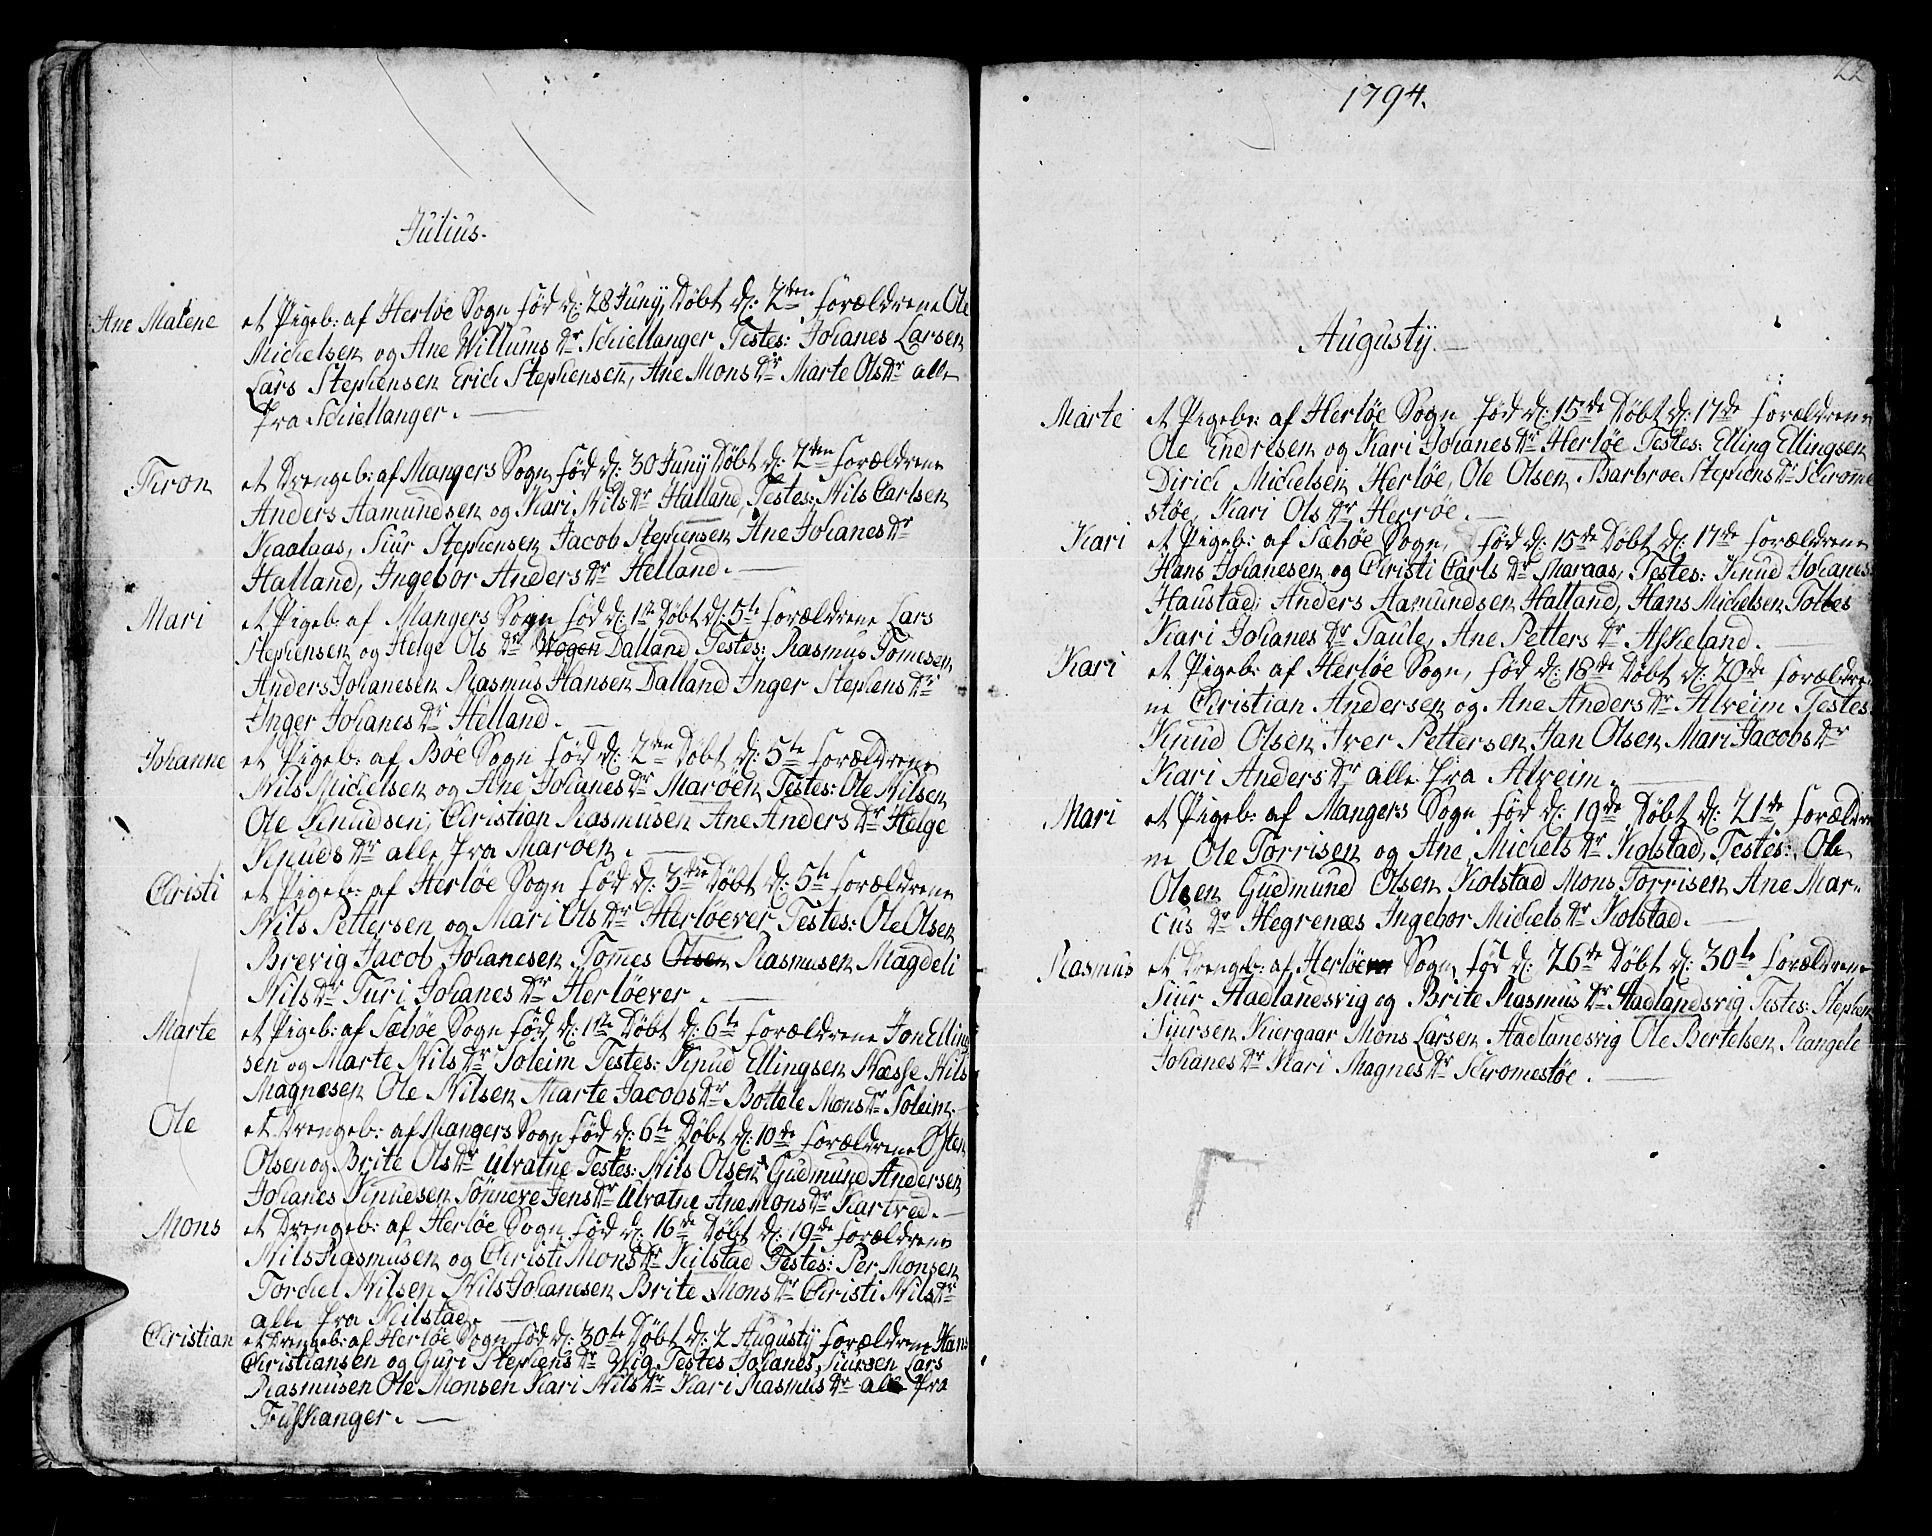 Julius.
Ane Malene et Pigeb: af Herløe Sogn fød d: 28 Juny, Døbt d: 2den forældrene Ole
Michelsen og Ane Willums dr Schiellanger Testes: Johanes Larsen
Lars Stephensen Erich Stephensen, Ane Mons dr Marte Ols dr alle
fra Schiellanger.
et Drengeb: af Mangers Sogn fød d: 30 Juny Døbt d: 2den forældrene
Anders Aamundsen og Kari Nils dr Halland, Testes: Nils Carlsen
Kaalaas, Siur Stephensen Jacob Stephensen Ane Johanes dr
Halland, Ingebor Anders dr Helland.
Mari et Pigeb: af Mangers Sogn fød d: 1te Døbt d: 5te forældrene Lars
Stephensen og Helge Ols dr Wogen Dalland Testes: Rasmus Tomesen
Anders Johanesen Rasmus Hansen Dalland Inger Stephens dr
Inger Johanes dr Helland.
Johanne et Pigeb: af Boe Sogn fød d: 2den Døbt d: 5te forældrene
Nils Michelsen og Ane Johanes dr Marøen Testes: Ole Nilsen
Ole Knudsen, Christian Rasmusen Ane Anders dr Helge
Knuds dr alle fra Marøen.
Christi et Pigeb: af Herløe Sogn fød d: 3die Døbt d: 5te forældrene
Nils Pettersen og Mari Ols dr Herløever Testes: Ole Olsen
Brevig Jacob Johanesen Tomes Olsen Rasmusen Magdeli
Nils dr Turi Johanes dr Herløever.
Marte et Pigeb: af Sæbøe Sogn fød d: 1ste Døbt d: 6te forældrene Jon Elling
sen og Marte Nils dr Soleim Testes: Knud Ellingsen Næsse Nils
Magnesen Ole Nilsen Marte Jacobs dr Bottele Mons dr Soleim.
Ole et Drengeb: af Mangers Sogn fød d: 6te Døbt d: 10de forældrene Østen
Olsen og Brite Ols dr Ulvatne Testes: Nils Olsen Gudmund Andersen
Johanes Knudsen Sønneve Jens dr Ulvatne Ane Mons dr Kartved.
Mons et Drengeb: af Herløe Sogn fød d: 16de Døbt d: 19de forældrene
Nils Rasmusen og Christi Mons dr Kilstad Testes: Per Monsen
Torchel Nilsen Nils Johanesen Brite Mons dr Christi Nils dr
alle fra Kilstad.
Christian et Drengeb: af Herløe Sogn fød d: 30te Døbt d: 2 Augusty forældrene Hans
Christiansen og Guri Stephens dr Wig Testes Johanes Siursen Lars
Rasmusen Ole Monsen Kari Nils dr Kari Rasmus dr alle fra
Fuskanger.
22
1794.
Augusty.
Marte et Pigeb: af Herløe Sogn fød d: 15de Døbt d: 17de forældrene
Ole Endresen og Kari Johanes dr Herløe Testes: Elling Ellingsen
Dirich Michelsen Herløe, Ole Olsen Barbroe Stephens dr Schrome
støe, Kari Ols dr Herløe.
Kari et Pigeb: af Sæbøe Sogn, fød d: 15de Døbt d: 17de forældrene
Hans Johanesen og Christi Carls dr Maraas, Testes: Knud Johanes
Haustad, Anders Aamundsen Halland, Hans Michelsen Toltes
Kari Johanes dr Taule, Ane Petters dr Askeland.
Kari et Pigeb: af Herløe Sogn, fød d: 18de Døbt d: 20de forældre
ne Christian Andersen og Ane Anders dr Alveim Testes:
Knud Olsen Iver Pettersen Jan Olsen Mari Jacobs dr
Kari Anders dr alle fra Alveim.
Mari et Pigeb: af Mangers Sogn fød d: 19de Døbt d: 21de forældre
ne Ole Torrisen og Ane Michels dr Kolstad, Testes: Ole
Olsen Gudmund Olsen Kolstad Mons Torrisen Ane Mar-
cus dr Hegrenæs Ingebor Michels dr Kolstad.
Rasmus et Drengeb: af Herløe Sogn fød d: 26de Døbt d: 30te forældrene
Siur Hadlandsvig og Brite Rasmus dr Hadlandsvig Testes: Stephen
Siursen Kiergaar Mons Larsen Aadlandsvig Ole Bertelsen Rangele
Johanes dr Kari Magnes dr Schromestøe.